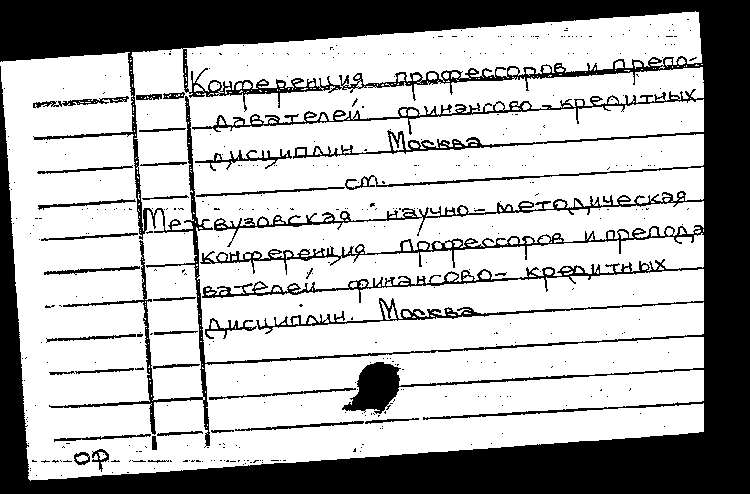 Конференция профессоров и препо-
давателей финансово-кредитных
дисциплин. Москва
см.
Межвузовская научно-методическая
конференция профессоров и препода
вателей финансово-кредитных
дисциплин. Москва
ор